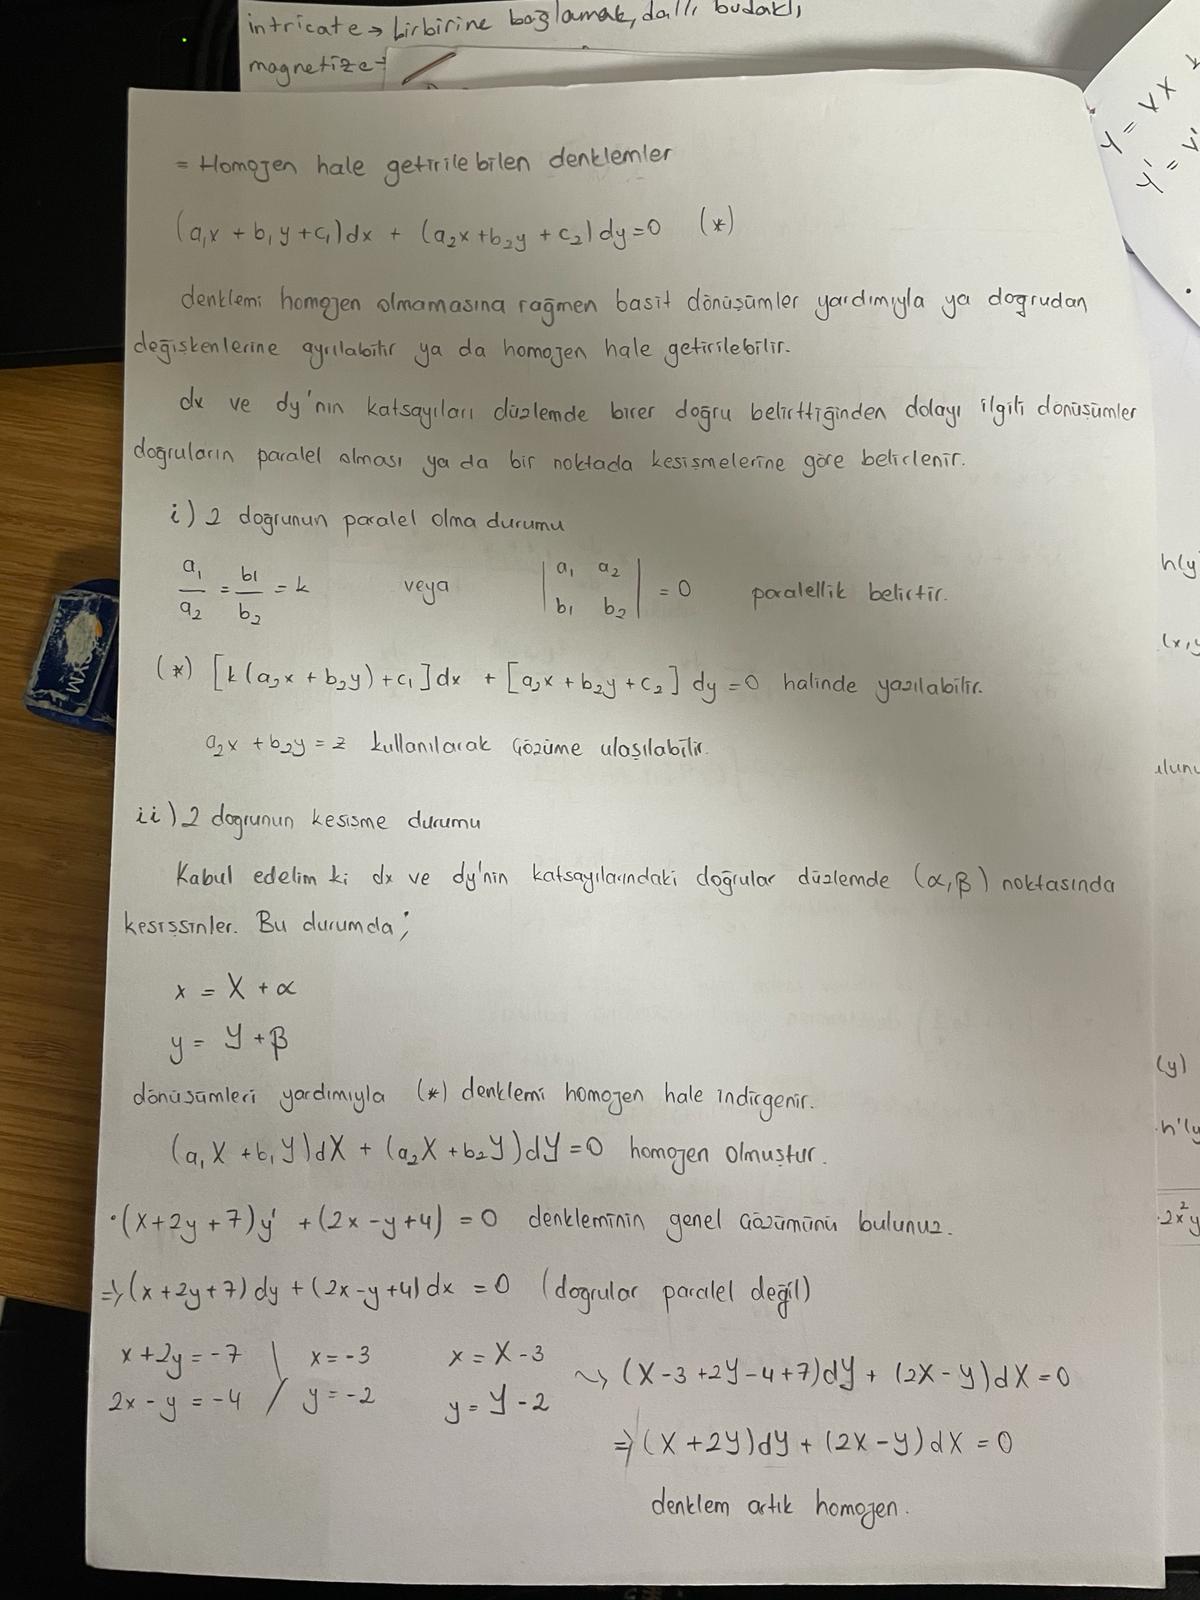 intricate → birbirine bağlamak, dallı budaklı
magnetize →
= Homojen hale getirilebilen denklemler
(a₁x + b₁y + c₁)dx + (a₂x + b₂y + c₂)dy = 0 (*)
denklemi homojen olmamasına rağmen basit dönüşümler yardımıyla ya doğrudan
değişkenlerine ayrılabilir ya da homojen hale getirilebilir.
dx ve dy'nin katsayıları düzlemde birer doğru belirttiğinden dolayı ilgili dönüşümler
doğruların paralel olması ya da bir noktada kesişmelerine göre belirlenir.
i) 2 doğrunun paralel olma durumu
a₁/a₂ = b₁/b₂ = k veya |a₁ a₂; b₁ b₂| = 0 paralellik belirtir.
(*) [k(a₂x + b₂y) + c₁]dx + [a₂x + b₂y + c₂]dy = 0 halinde yazılabilir.
a₂x + b₂y = z kullanılarak çözüme ulaşılabilir.
ii) 2 doğrunun kesişme durumu
Kabul edelim ki dx ve dy'nin katsayılarındaki doğrular düzlemde (α, β) noktasında
kesişsinler. Bu durumda;
x = X + α
y = Y + β
dönüşümleri yardımıyla (*) denklemi homojen hale indirgenir.
(a₁X + b₁Y)dX + (a₂X + b₂Y)dY = 0 homojen olmuştur.
• (x + 2y + 7)y' + (2x - y + 4) = 0 denkleminin genel çözümünü bulunuz.
⇒ (x + 2y + 7)dy + (2x - y + 4)dx = 0 (doğrular paralel değil)
x + 2y = -7 x = -3 x = X - 3 ⇝ (X - 3 + 2Y - 4 + 7)dY + (2X - Y)dX = 0
2x - y = -4 y = -2 y = Y - 2
⇒ (X + 2Y)dY + (2X - Y)dX = 0
denklem artık homojen.
y = vx
h(y
(x,y
(y)
h'(y
2x²y